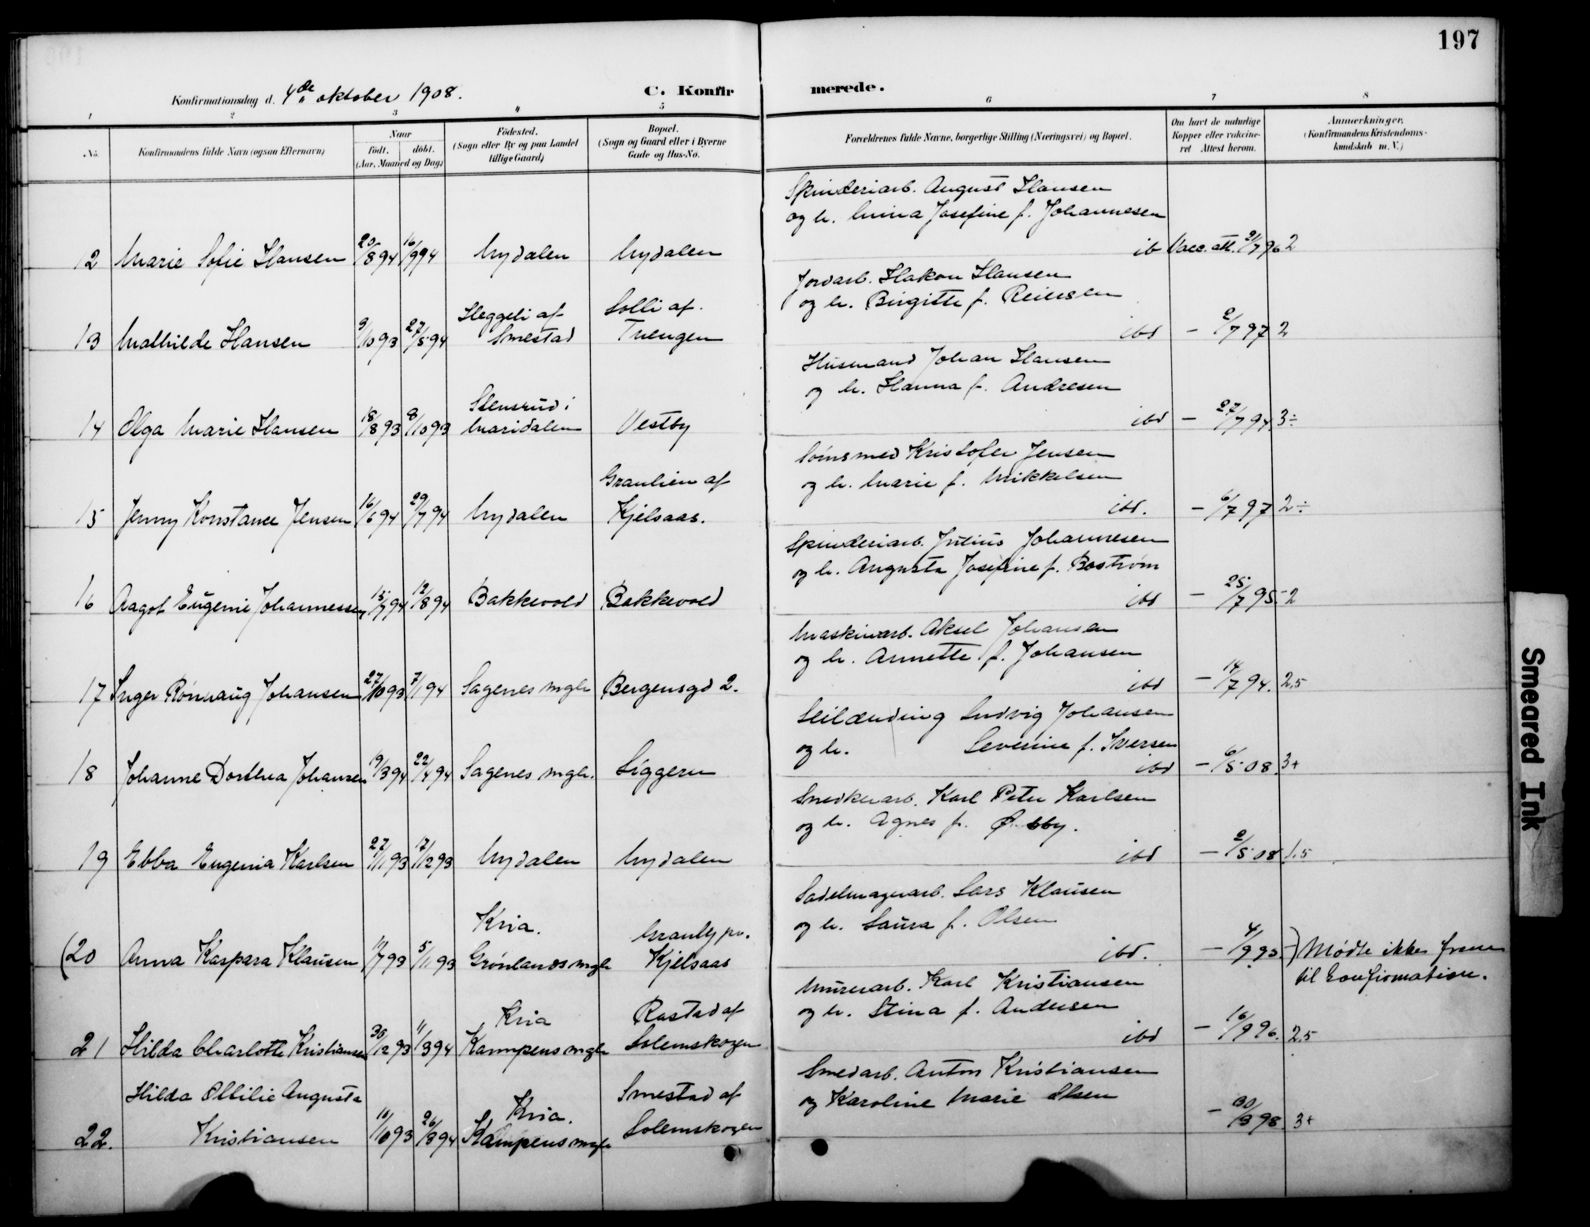 197
Konfirmationsdag d. 4de oktober 1908.
C. Konfirmerede.
1 2 3 4 5 6 7 8
No.
Konfirmandens fulde Navn (ogsaa Efternavn)
Naar
født. døbt.
(Aar, Maaned og Dag)
Fødested.
(Sogn eller By og paa Landet
tillige Gaard)
Bopæl.
(Sogn og Gaard eller i Byerne
Gade og Hus-No.
Forældrenes fulde Navne, borgerlige Stilling (Næringsvei) og Bopæl.
Om havt de naturlige
Kopper eller vaksine-
ret Attest herom.
Anmerkninger.
(Konfirmandens Kristendoms-
kundskab m. V.)
Spinderiarb. August Hansen
og h. Mina Josefine f. Johannesen
12 Marie Sofie Hansen 20/8 94 16/9 94 Nydalen Nydalen ib Vacc. att. 2/7 96 2
Jordarb. Hakon Hansen
og h. Birgitte f. Reiersen
Heggeli af Solli af
13 Mathilde Hansen 9/10 93 27/5 94 Smestad Tuengen ibd - 2/7 97 2
Husmand Johan Hansen
og h. Hanna f. Andresen
Stensrud i
14 Olga Marie Hansen 18/8 93 8/10 93 Maridalen Vestby ibd - 27/7 94. 3÷
Kristofer Jensen
og h. Marie f. Mikkelsen
Granlien af
15 Jenny Konstance Jensen 16/6 94 29/7 94 Nydalen Kjelsaas. ibd. - 6/7 97 2÷
Spinderiarb. Julius Johannesen
og h. Augusta Josefine f. Boström
16 Aagot Eugenie Johannessen 15/7 94 12/8 94 Bakkevold Bakkevold ibd - 25/7 95 2
Maskinarb. Aksel Johansen
og h. Annette f. Johansen
17 Inger Rönnaug Johansen 27/10 93 7/1 94 Sagenes mgh Bergensgd 2. ibd - 14/7 94. 2,5
Ludvig Johansen
og h. Severine f. Iversen
18 Johanne Dorthea Johansen 19/3 94 22/4 94 Sagenes mgh. Siggeru ibd - 6/5 08. 3+
Snedkerarb. Karl Peter Karlsen
og h. Agnes f.
19 Ebba Eugenia Karlsen 27/11 93 17/12 93 Nydalen Nydalen ibd - 2/5 08 1.5
Sadelmagerarb. Lars Klausen
og h. Laura f. Olsen
Kria.
(20 Anna Kaspara Klausen 5/11 93 Grönlands mgh Kjelsaas ibd. - 4/9 95 ) Mødte ikke frem
til konfirmation.
Murerarb. Karl Kristiansen
og h. Stina f. Andersen
Kria Rastad af
21 Hilda Charlotte Kristiansen 30/12 93 11/3 94 Kampens mgh Solemskogen ibd - 16/9 96. 2.5
Smedarb. Anton Kristiansen
og Karoline Marie Olsen
Hilda Ottilie Augusta Kria. Smestad af
22. Kristiansen 10/10 93 26/3 94 Kampens mgh Solemskogen - 30/9 98. 3+
Smeared Ink